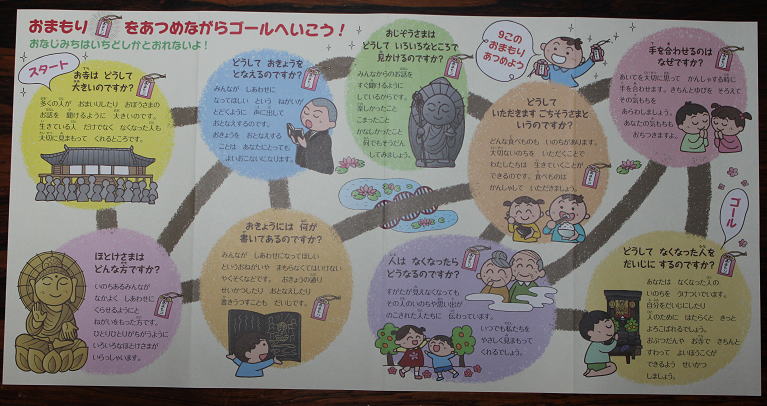 おまもり をあつめながらゴールへいこう！
おなじみちはいちどしかとおれないよ！
スタート
お寺は どうして
大きいのですか？
多くの人が おまいいしたり おぼうさまの
お話を 聞けるように 大きいのです。
生きている人 だけでなく なくなった人も
大切に見まもって くれるところです。
どうして おきょうを
となえるのですか？
みんなが しあわせに
なってほしい という ねがいが
とどくように 声に出して
おとなえするのです。
おきょうを おとなえする
ことは あなたにとっても
よいおこないになります。
おじぞうさまは
どうして いろいろなところで
見かけるのですか？
みんなからのお話を
すぐ聞けるように
しているからです。
楽しかったこと
こまったこと
かなしかったこと
何でもそうだん
してみましょう。
9この
おまもり
あつめよう
どうして
いただきます ごちそうさまと
いうのですか？
どんな食べものも いのちがあります。
大切ないのちを いただくことで
わたしたちは 生きていくことが
できるのです。食べものは
かんしゃして いただきましょう。
手を合わせるのは
なぜですか？
あいてを大切に思って かんしゃする時に
手を合わせます。きちんとゆびを そろえて
その気もちを
あらわしましょう。
あなたの気もちも
おちつきますよ。
ほとけさまは
どんな方ですか？
いのちあるみんなが
なかよく しあわせに
くらせるようにと
ねがいをもった方です。
ひとりひとりがちがうように
いろいろなほとけさまが
いらっしゃいます。
おきょうには 何が
書いてあるのですか？
みんなが しあわせになってほしい
というおねがいや まもらなくてはいけない
やくそくなどです。 おきょうの通り
せいかつしたり おとなえしたり
書きうつすことも だいじです。
人は なくなったら
どうなるのですか？
すがたが 見えなくなっても
その人のいのちや思い出が
のこされた人たちに 伝わっています。
いつでも私たちを
やさしく見まもって
くれるでしょう。
ゴール
どうして なくなった人を
だいじに するのですか？
あなたは なくなった人の
いのちを うけついでいます。
自分をだいじにしたり
人のために はたらくと きっと
よろこばれるでしょう。
おぶつだんや お寺で きちんと
すわって よいほうこくが
できるよう せいかつ
しましょう。